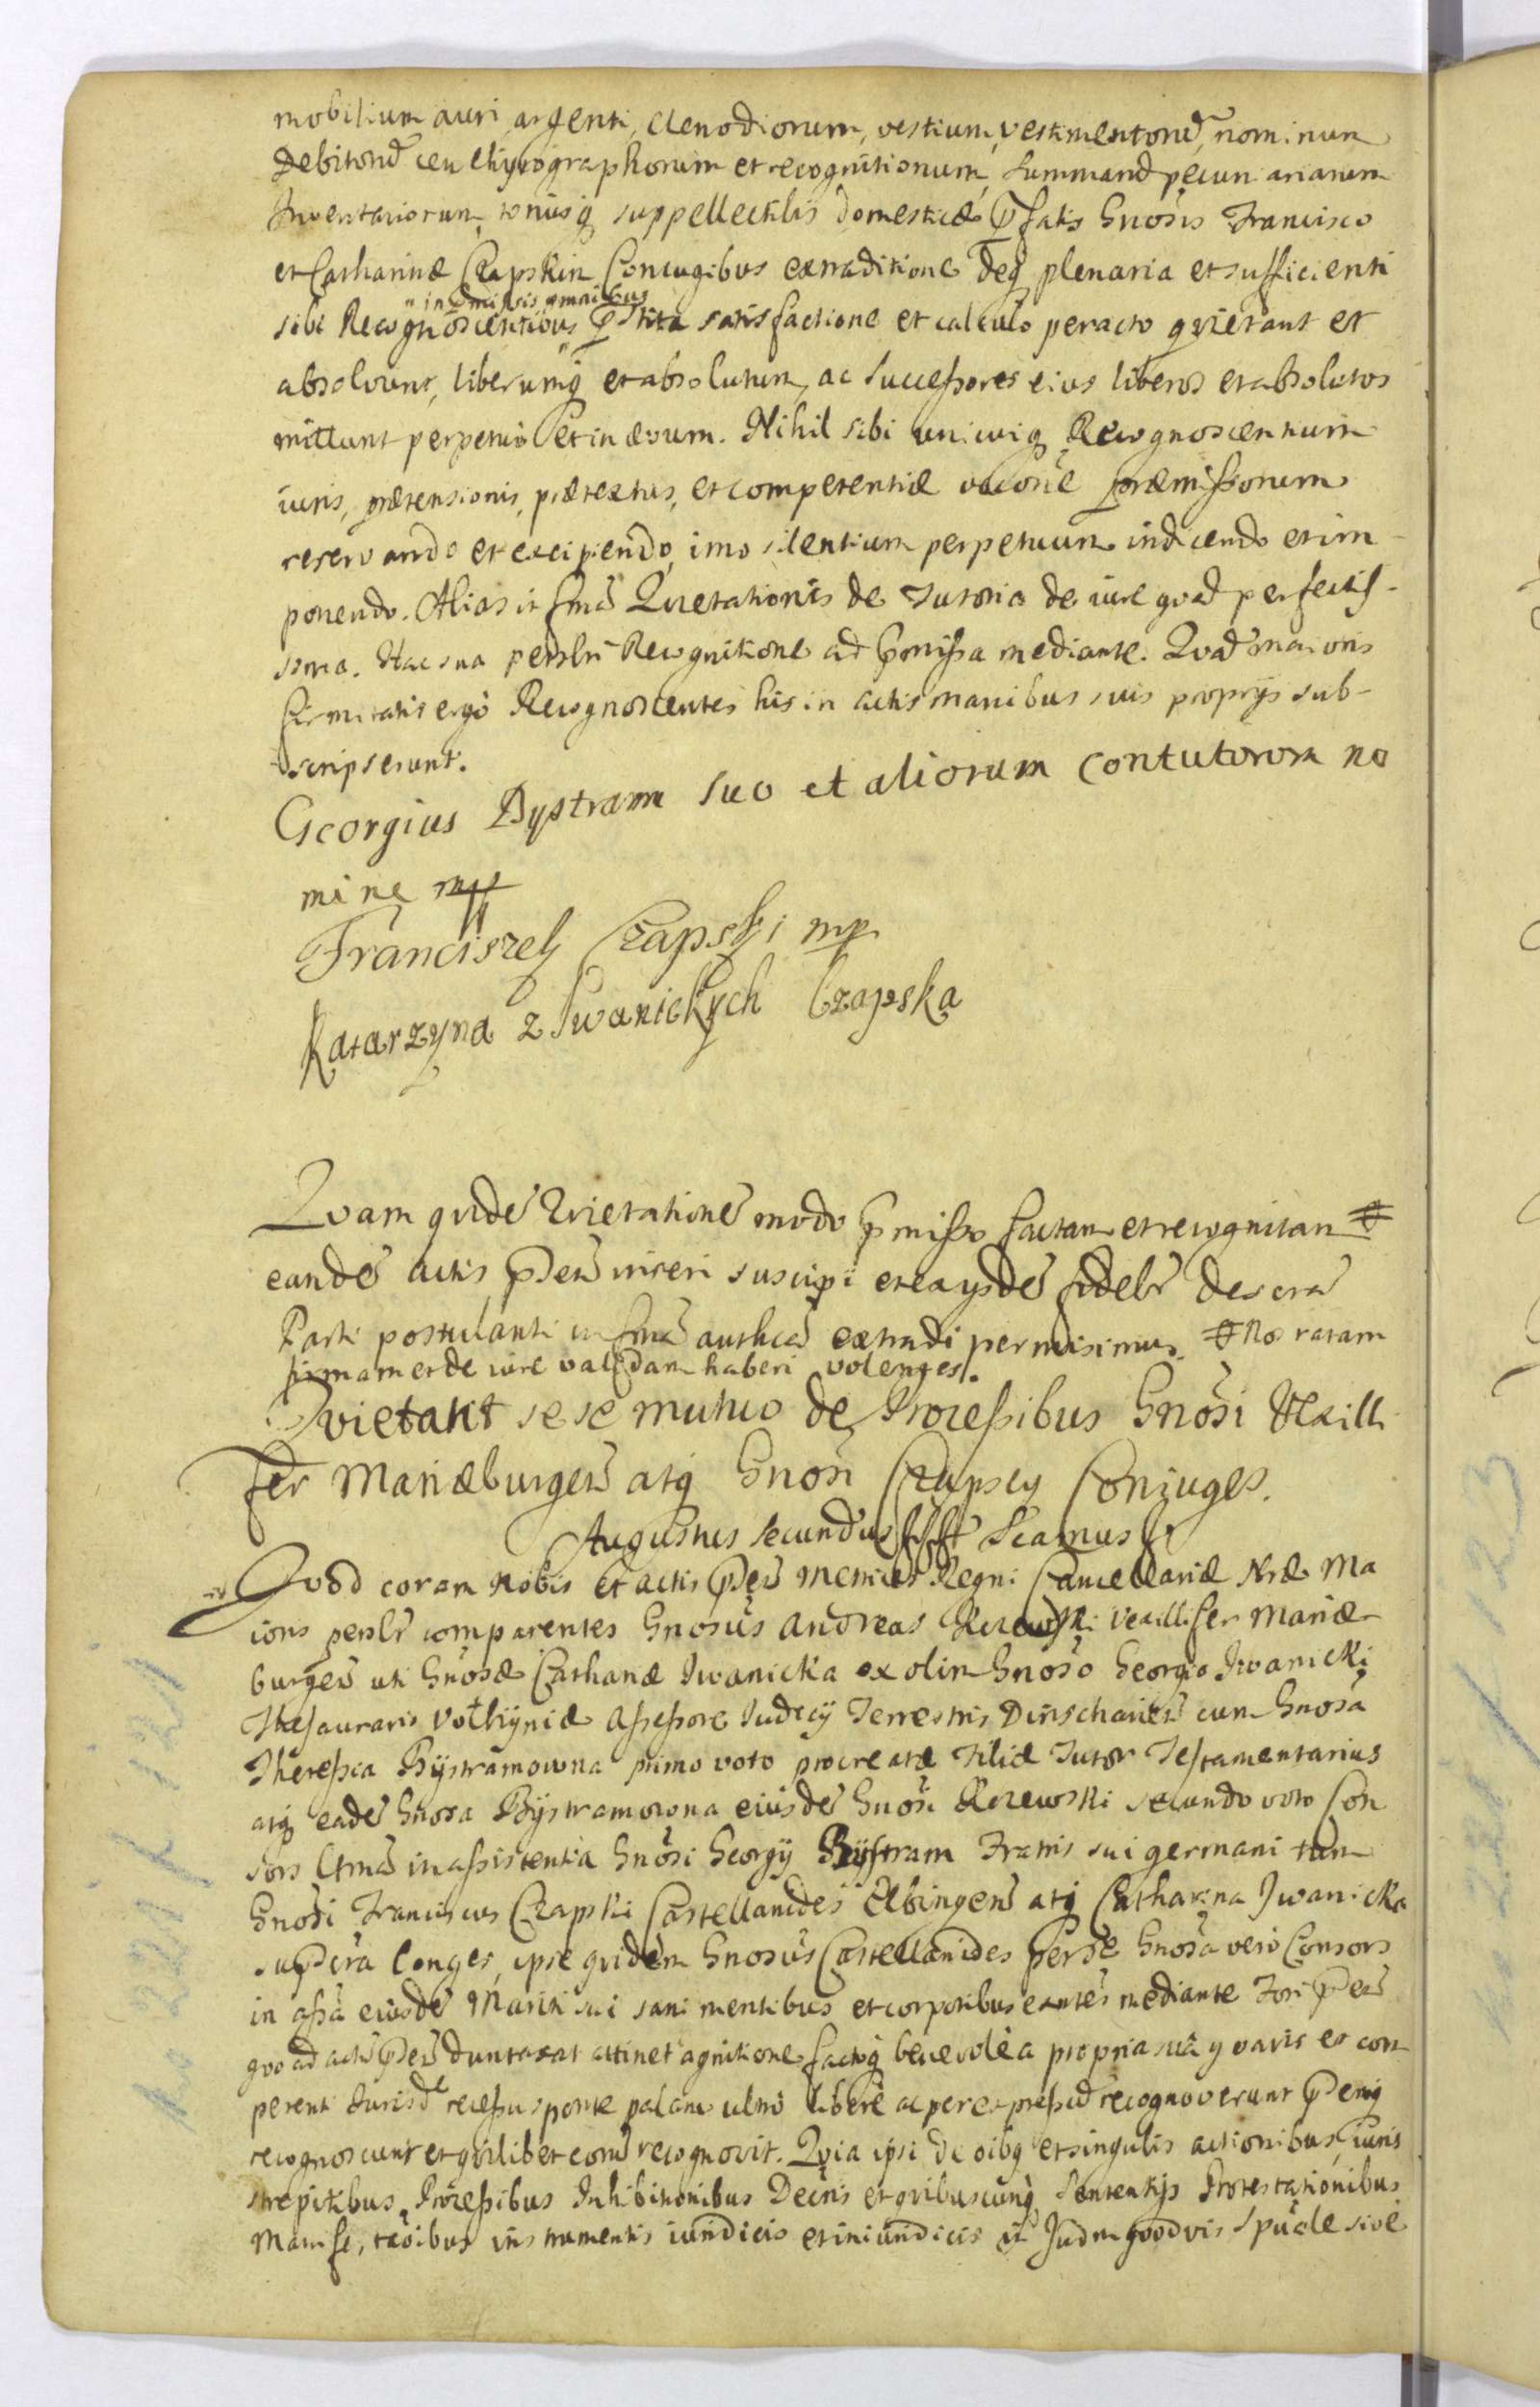 mobilium auri argenti, clenodiorum, vestium, vestimentorũ, nominum
Debitorũ ceu chyrographorum et recognitionum, summarũ pecuniariarum
Inventariorum, totiusq suppellectilis domesticæ Pfatis Gnosis Francisco
et Catharinæ Czapskin Coniugibus extraditione deq plenaria et sufficienti
in Pmissis omnibus
sibi Recognoscentibus Pstita satisfactione et calculo peracto qvietant et
absolvunt, liberumq et absolutum, ac Successores eius liberos et absolutos
mittunt perpetuo et in ævum. Nihil sibi unicuiq Recognoscentium
iuris, prætensionis, prætextus, et competentiæ vãoñe præmissorum
reservando et excipiendo, imo silentium perpetuum indicendo et im-
ponendo. Alias in fmã Qvietationis de Tutoria de iure qvãd perfectis-
sima. Hac sua persñlri Recognitione ad Pmissa mediante. Qvod maioris
firmitatis ergò Recognoscentes his in actis manibus suis proprijs sub-
scripserunt.
Georgius Bystram suo et aliorum contutorom no
mine mpp
Franciszek Czapski mp
Katarzyna z Iwanickych Czapska
Qvam qvidẽ Qvietationẽ modo Pmisso factam et recognitam #
eandẽ actis Pntibũ inseri suscipi et ex ijsdẽ fidelr descrã
Parti postulanti in fmã authcã extradi permisimus. # Nos ratam
firmam et de iure validam haberi volentes.
Qvietant sese mutuo de Processibus Gnosi Vexilli
fer Mariæburgeñ atq Gnosi Czapscy Coniuges.
Augustus Secundus fsft Seamus
Qvod coram Nobis et actis Pntibũ Metrices Regni Cancellariæ Nræ Ma
ioris persñlr comparentes Gnosus Andreas Krzewski Vexillifer Mariæ-
burgeñ uti Gnosæ Cathanæ Iwanicka ex olim Gnoso Georgio Iwanicki
Thesauraris Volhyniæ Assessore Iudicij Terrestris Dirschavieñ cum Gnosa
Theressia Bystramowna primo voto procreatæ filiæ Tutor Testamentarius
atq eadẽ Gnosa Bystramowna eiusdẽ Gnosi Krzewski secundo voto Con
sors ltmã in assistentia Gnosi Georgij Bystram Fratris sui germani tum
Gnosi Franciscus Czapski Castellanides Elbingeñ atq Catharina Iwanicka
supscra Conges, ipse qvidem Gnosus Castellanides per se Gnosa vero Consors
in assa eiusdẽ Mariti sui sani mentibus et corporibus exntes mediante Fori Pntis
qvo ad actũ Pntẽ duntaxat attinet agnitione factaq benevole a propria sua qvavis et com
petenti Iurisd recessu sponte palam ultro libere ac per expressũ recognoverunt Pntibq
recognoscunt et qvilibet eorũ recognovit. Qvia ipsi de oibq et singulis actionibus, iuris
strepitibus, Processibus Inhibitionibus Decris et qvibuscunq Sententijs Protestationibus
Manifestãoibus instrumentis iuridicis et iniuridicis in Judm qvodvis Spuale sive